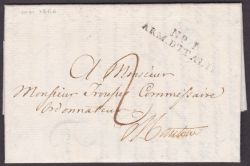 No. 1
ARM. D'ITALIE
A Monsieur
Monsieur Trouspe Commissaire
Ordonnateur
2
Mantoue